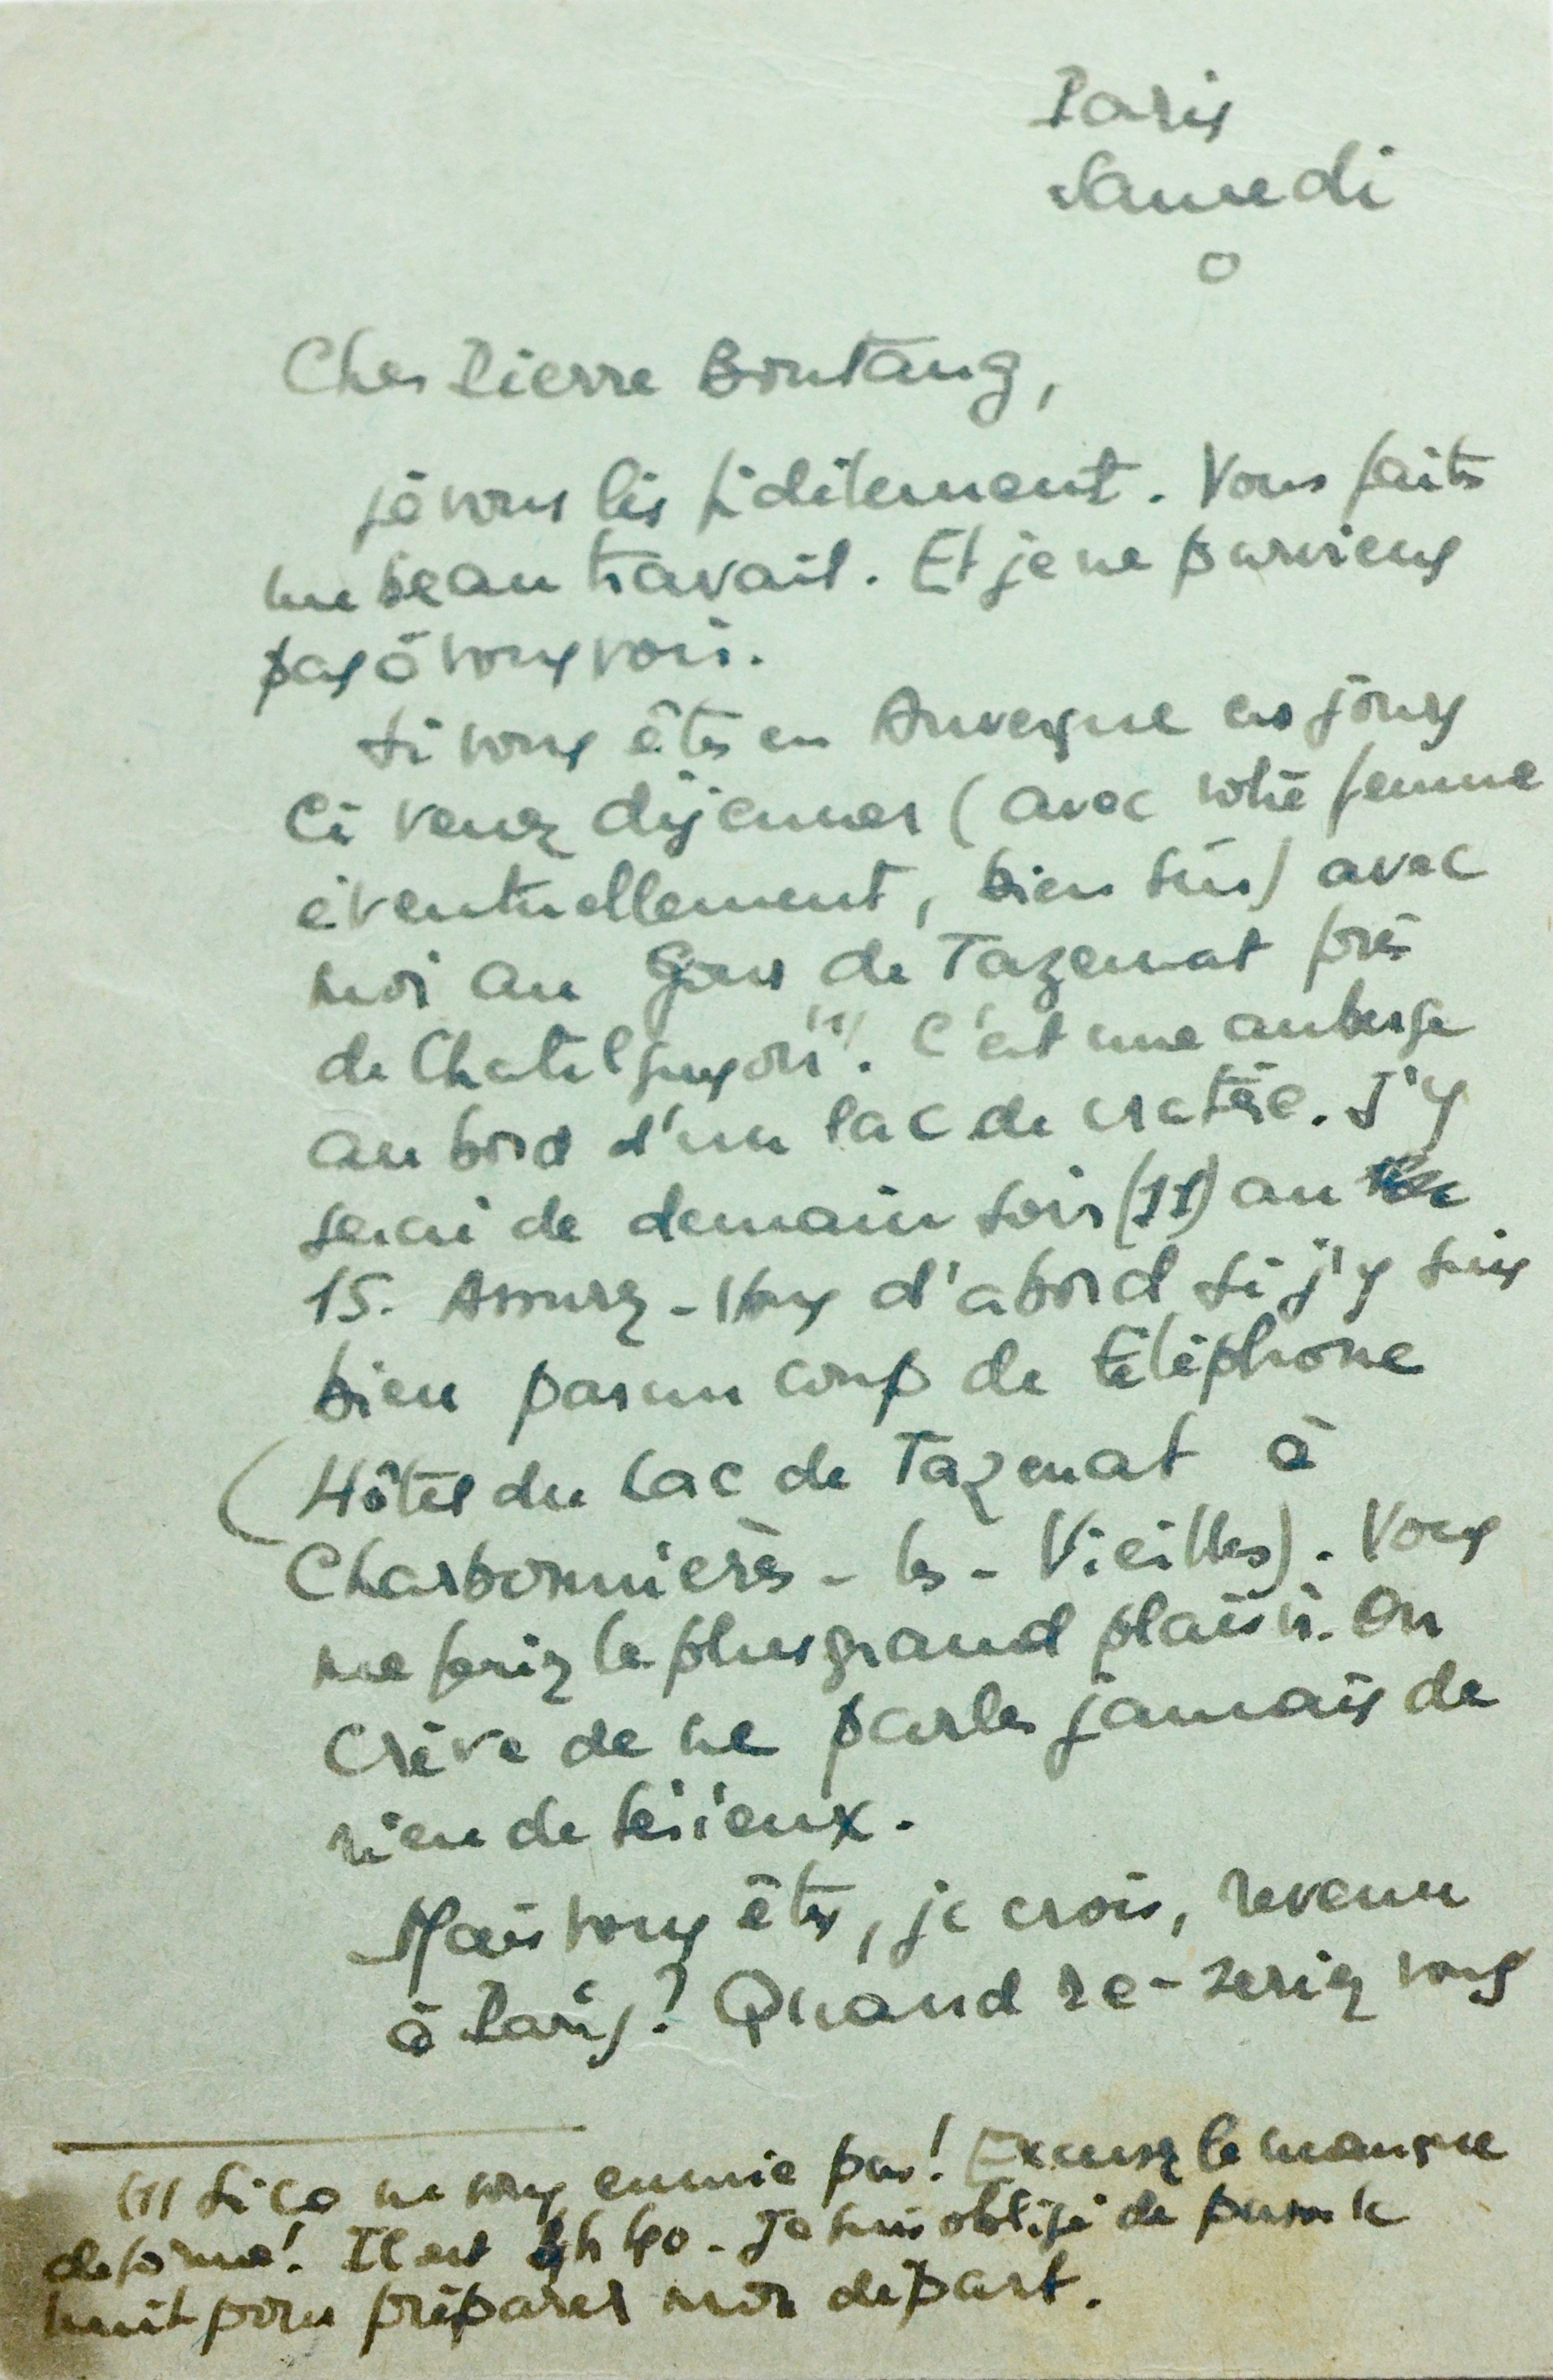 Paris
Samedi
Cher Pierre Boutang,
je vous lis fidèlement. Vous faites
un beau travail. Et je ne parviens
pas à vous voir.
Si vous êtes en Auvergne ces jours
ci venez déjeuner (avec votre femme
éventuellement, bien sûr) avec
moi au Gour de Tazenat près
de Chatelguyon (1). C'est une auberge
au bord d'un lac de cratère. J'y
serai de demain soir (11) au
15. Assurez-vous d'abord si j'y suis
bien par un coup de téléphone
(Hôtel du Lac de Tazenat à
Charbonnières-les-Vieilles). Vous
me feriez le plus grand plaisir. On
crève de ne parler jamais de
rien de sérieux.
Mais vous êtes, je crois, revenu
à Paris? Quand re-seriez vous
(1) Si ça ne vous ennuie pas! Excusez le manque
de forme! Il est 4h 40. Je suis obligé de passer la
nuit pour préparer mon départ.